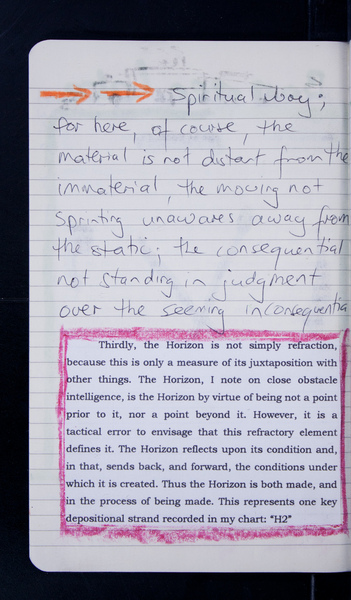 Spiritual way;
for here, of course, the
material is not distant from the
immaterial, the moving not
sprinting unawares away from
the static; the consequential
not standing in judgment
over the seeming inconsequential
Thirdly, the Horizon is not simply refraction,
because this is only a measure of its juxtaposition with
other things. The Horizon, I note on close obstacle
intelligence, is the Horizon by virtue of being not a point
prior to it, nor a point beyond it. However, it is a
tactical error to envisage that this refractory element
defines it. The Horizon reflects upon its condition and,
in that, sends back, and forward, the conditions under
which it is created. Thus the Horizon is both made, and
in the process of being made. This represents one key
depositional strand recorded in my chart: "H2"